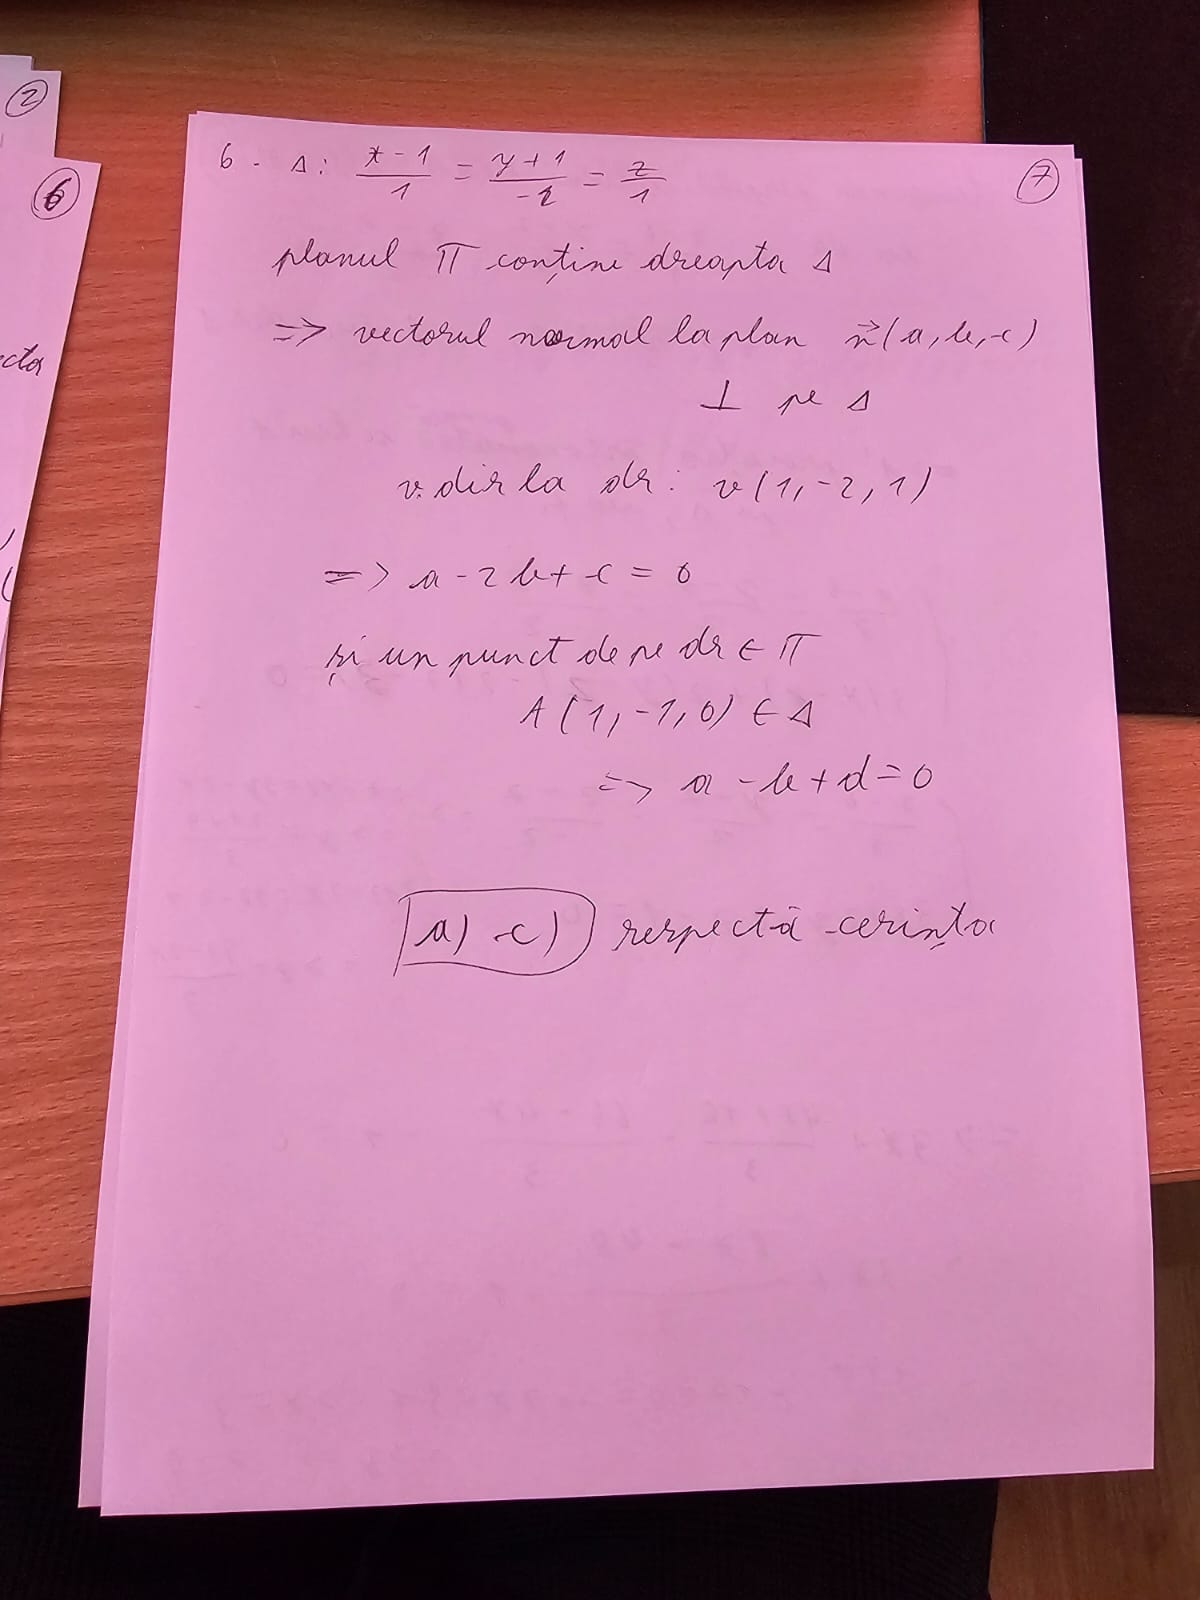 2
6
ecta
7
6. Δ: (x-1)/1 = (y+1)/-2 = z/1
planul π conține dreapta Δ
=> vectorul normal la plan n⃗(a, b, c)
⊥ pe Δ
v. dir la dr: v(1, -2, 1)
=> a - 2b + c = 0
și un punct de pe dr ∈ π
A(1, -1, 0) ∈ Δ
=> a - b + d = 0
a) c) respectă cerința